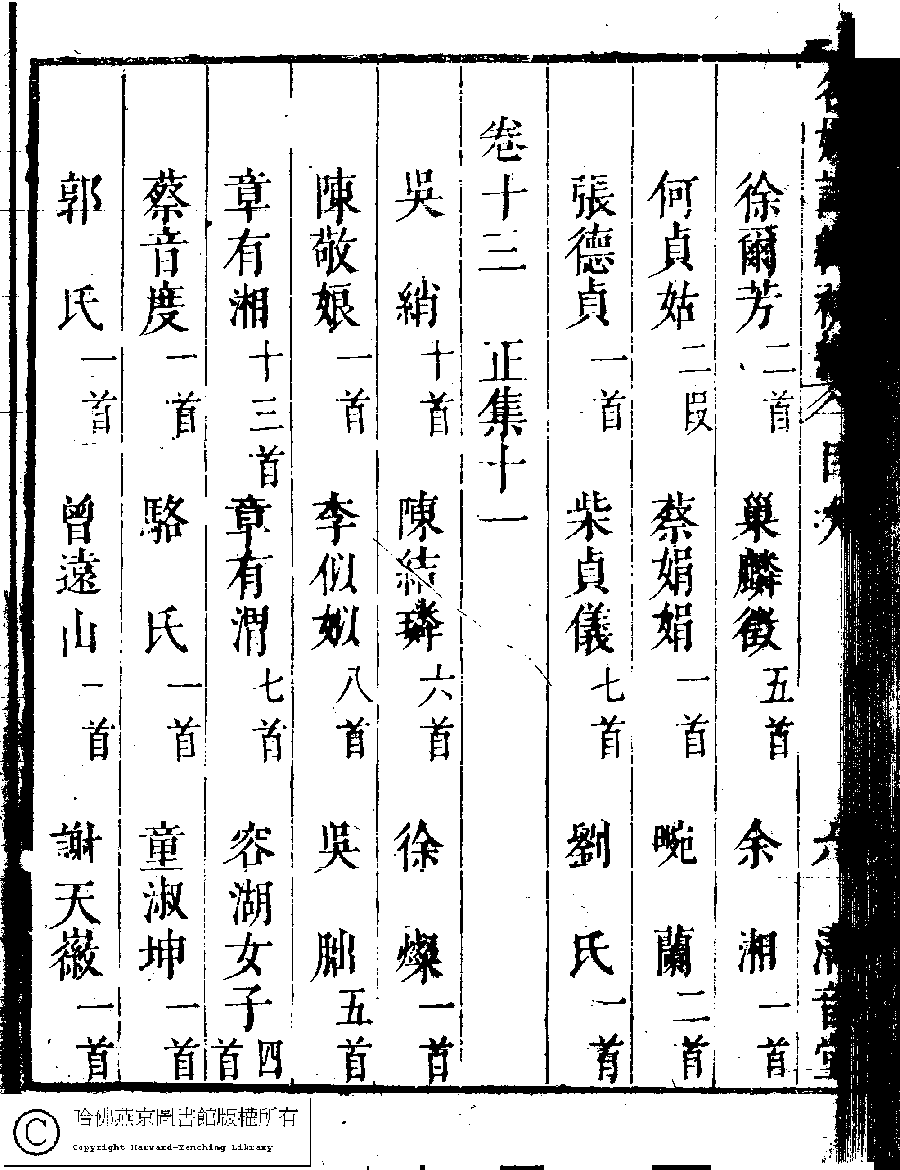 徐爾芳 二首 巢麟徵 五首 余湘 一首
何貞姑 二段 蔡娟娟 一首 畹蘭 二首
張德貞 一首 柴貞儀 七首 劉氏 一首
卷十三 正集十一
吳綃 十首 陳結璘 六首 徐燦 一首
陳敬娘 一首 李似姒 八首 吳朏 五首
章有湘 十三首 章有渭 七首 容湖女子 四首
蔡音度 一首 駱氏 一首 童淑坤 一首
郭氏 一首 曾遠山 一首 謝天薇 一首
哈佛燕京圖書館版權所有
Copyright Harvard-Yenching Library